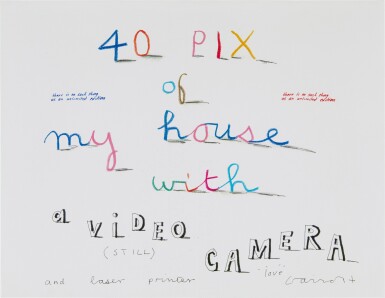 40 PIX
of
there is no such thing
as an unlimited edition
there is no such thing
as an unlimited edition
my house
with
a VIDEO
(STILL)
CAMERA
and laser printer
"love"